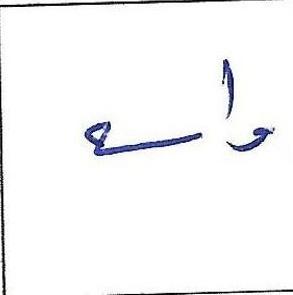 واسع